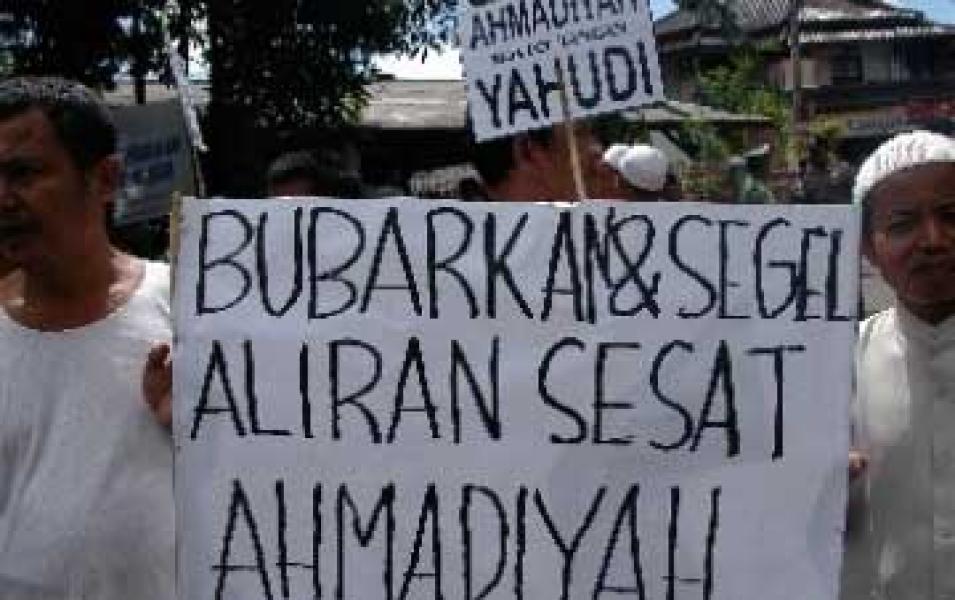 AHMADIYAH
YAHUDI
BUBARKAN & SEGEL
ALIRAN SESAT
AHMADIYAH